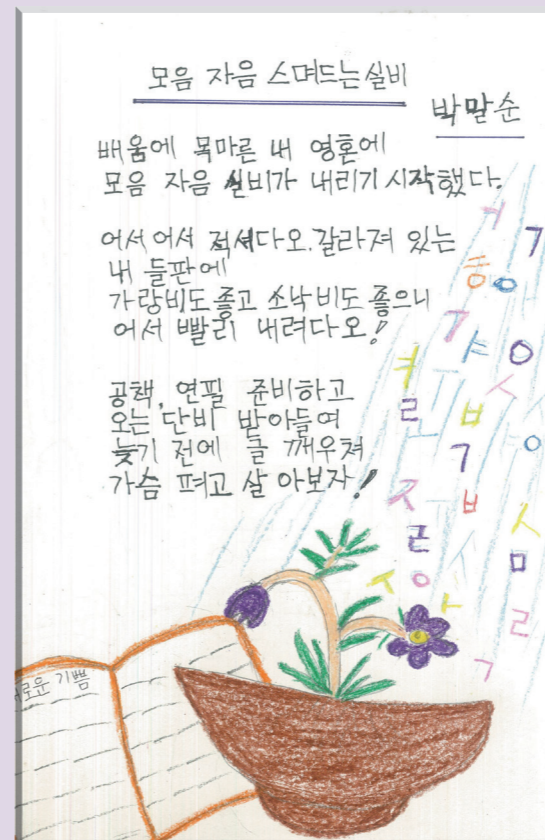 모음 자음 스며드는 실비
박말순
배움에 목마른 내 영혼에
모음 자음 실비가 내리기 시작했다.
어서 어서 적셔다오. 갈라져 있는
내 들판에
가랑비도 좋고 소낙비도 좋으니
어서 빨리 내려다오!
공책, 연필 준비하고
오는 단비 받아들여
늦기 전에 글 깨우쳐
가슴 펴고 살아보자!
로운 기쁨